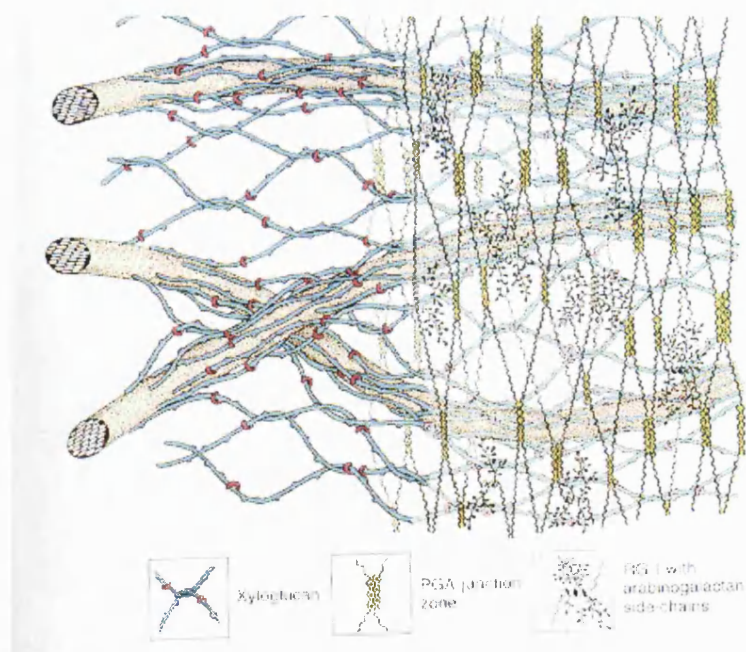 Xyloglucan
PGA junction
zone
RG I with
arabinogalactan
side-chains